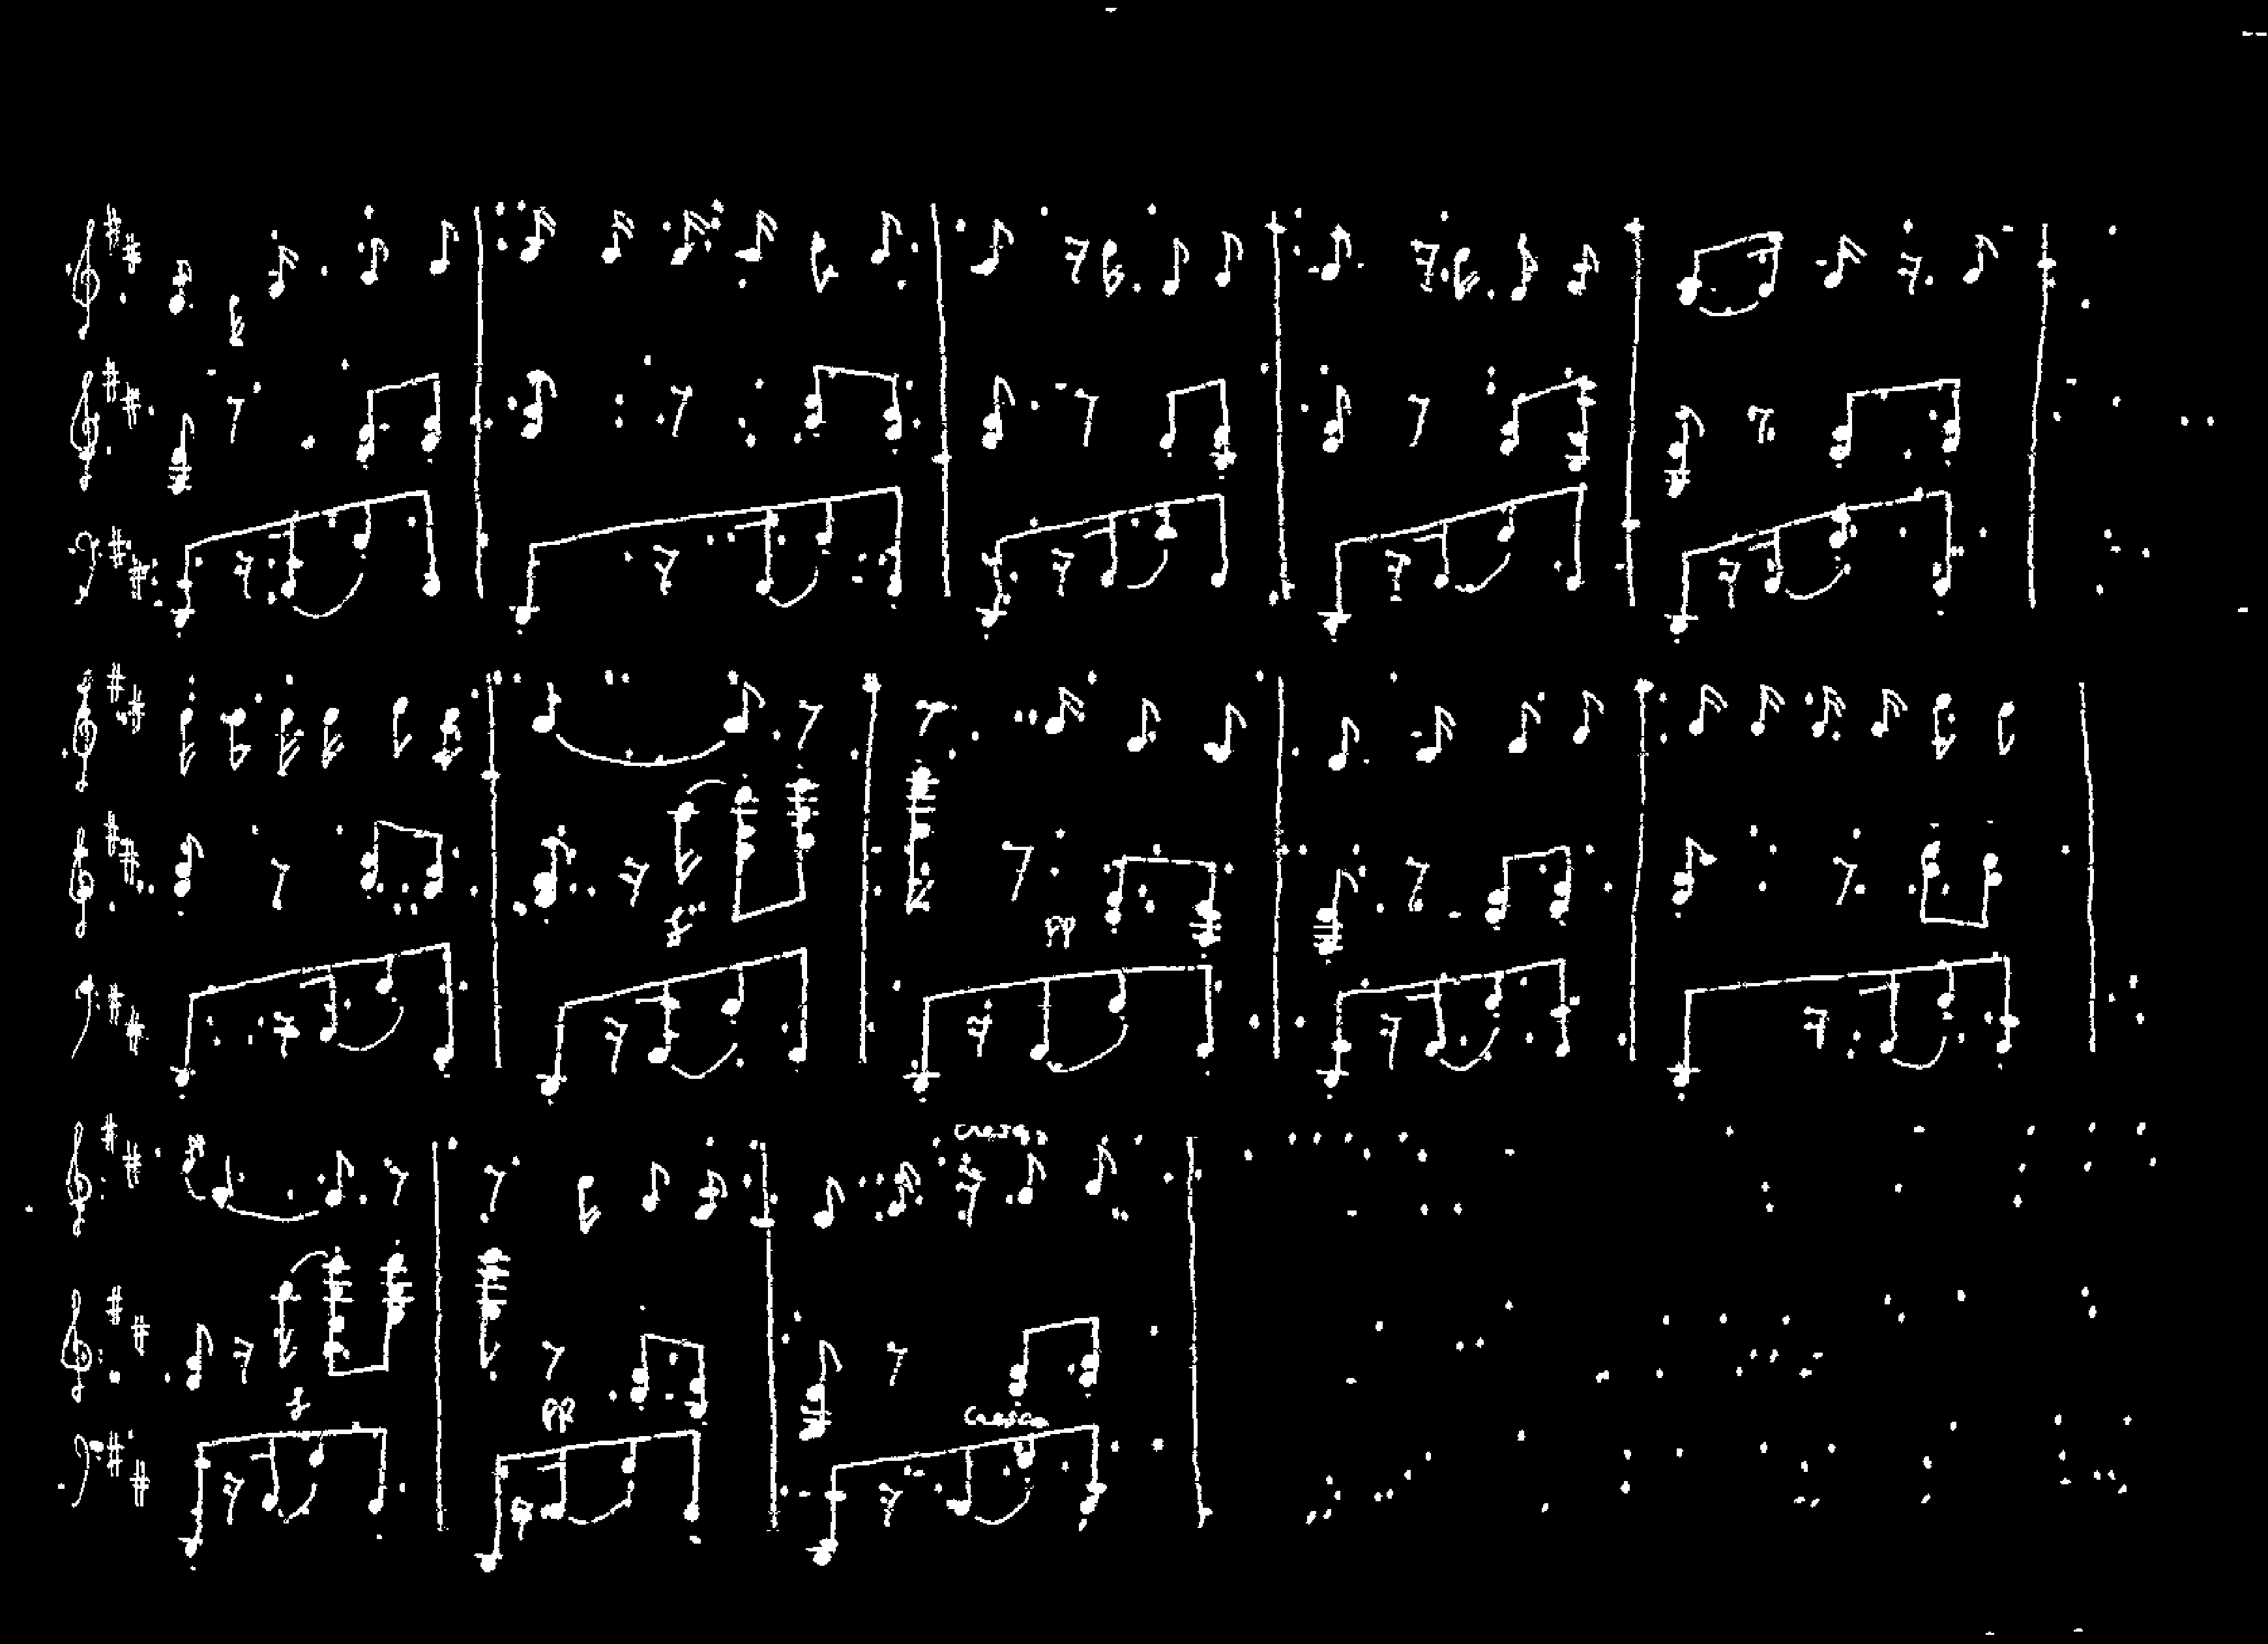 f
pp
cresc
f
pp
Cresc